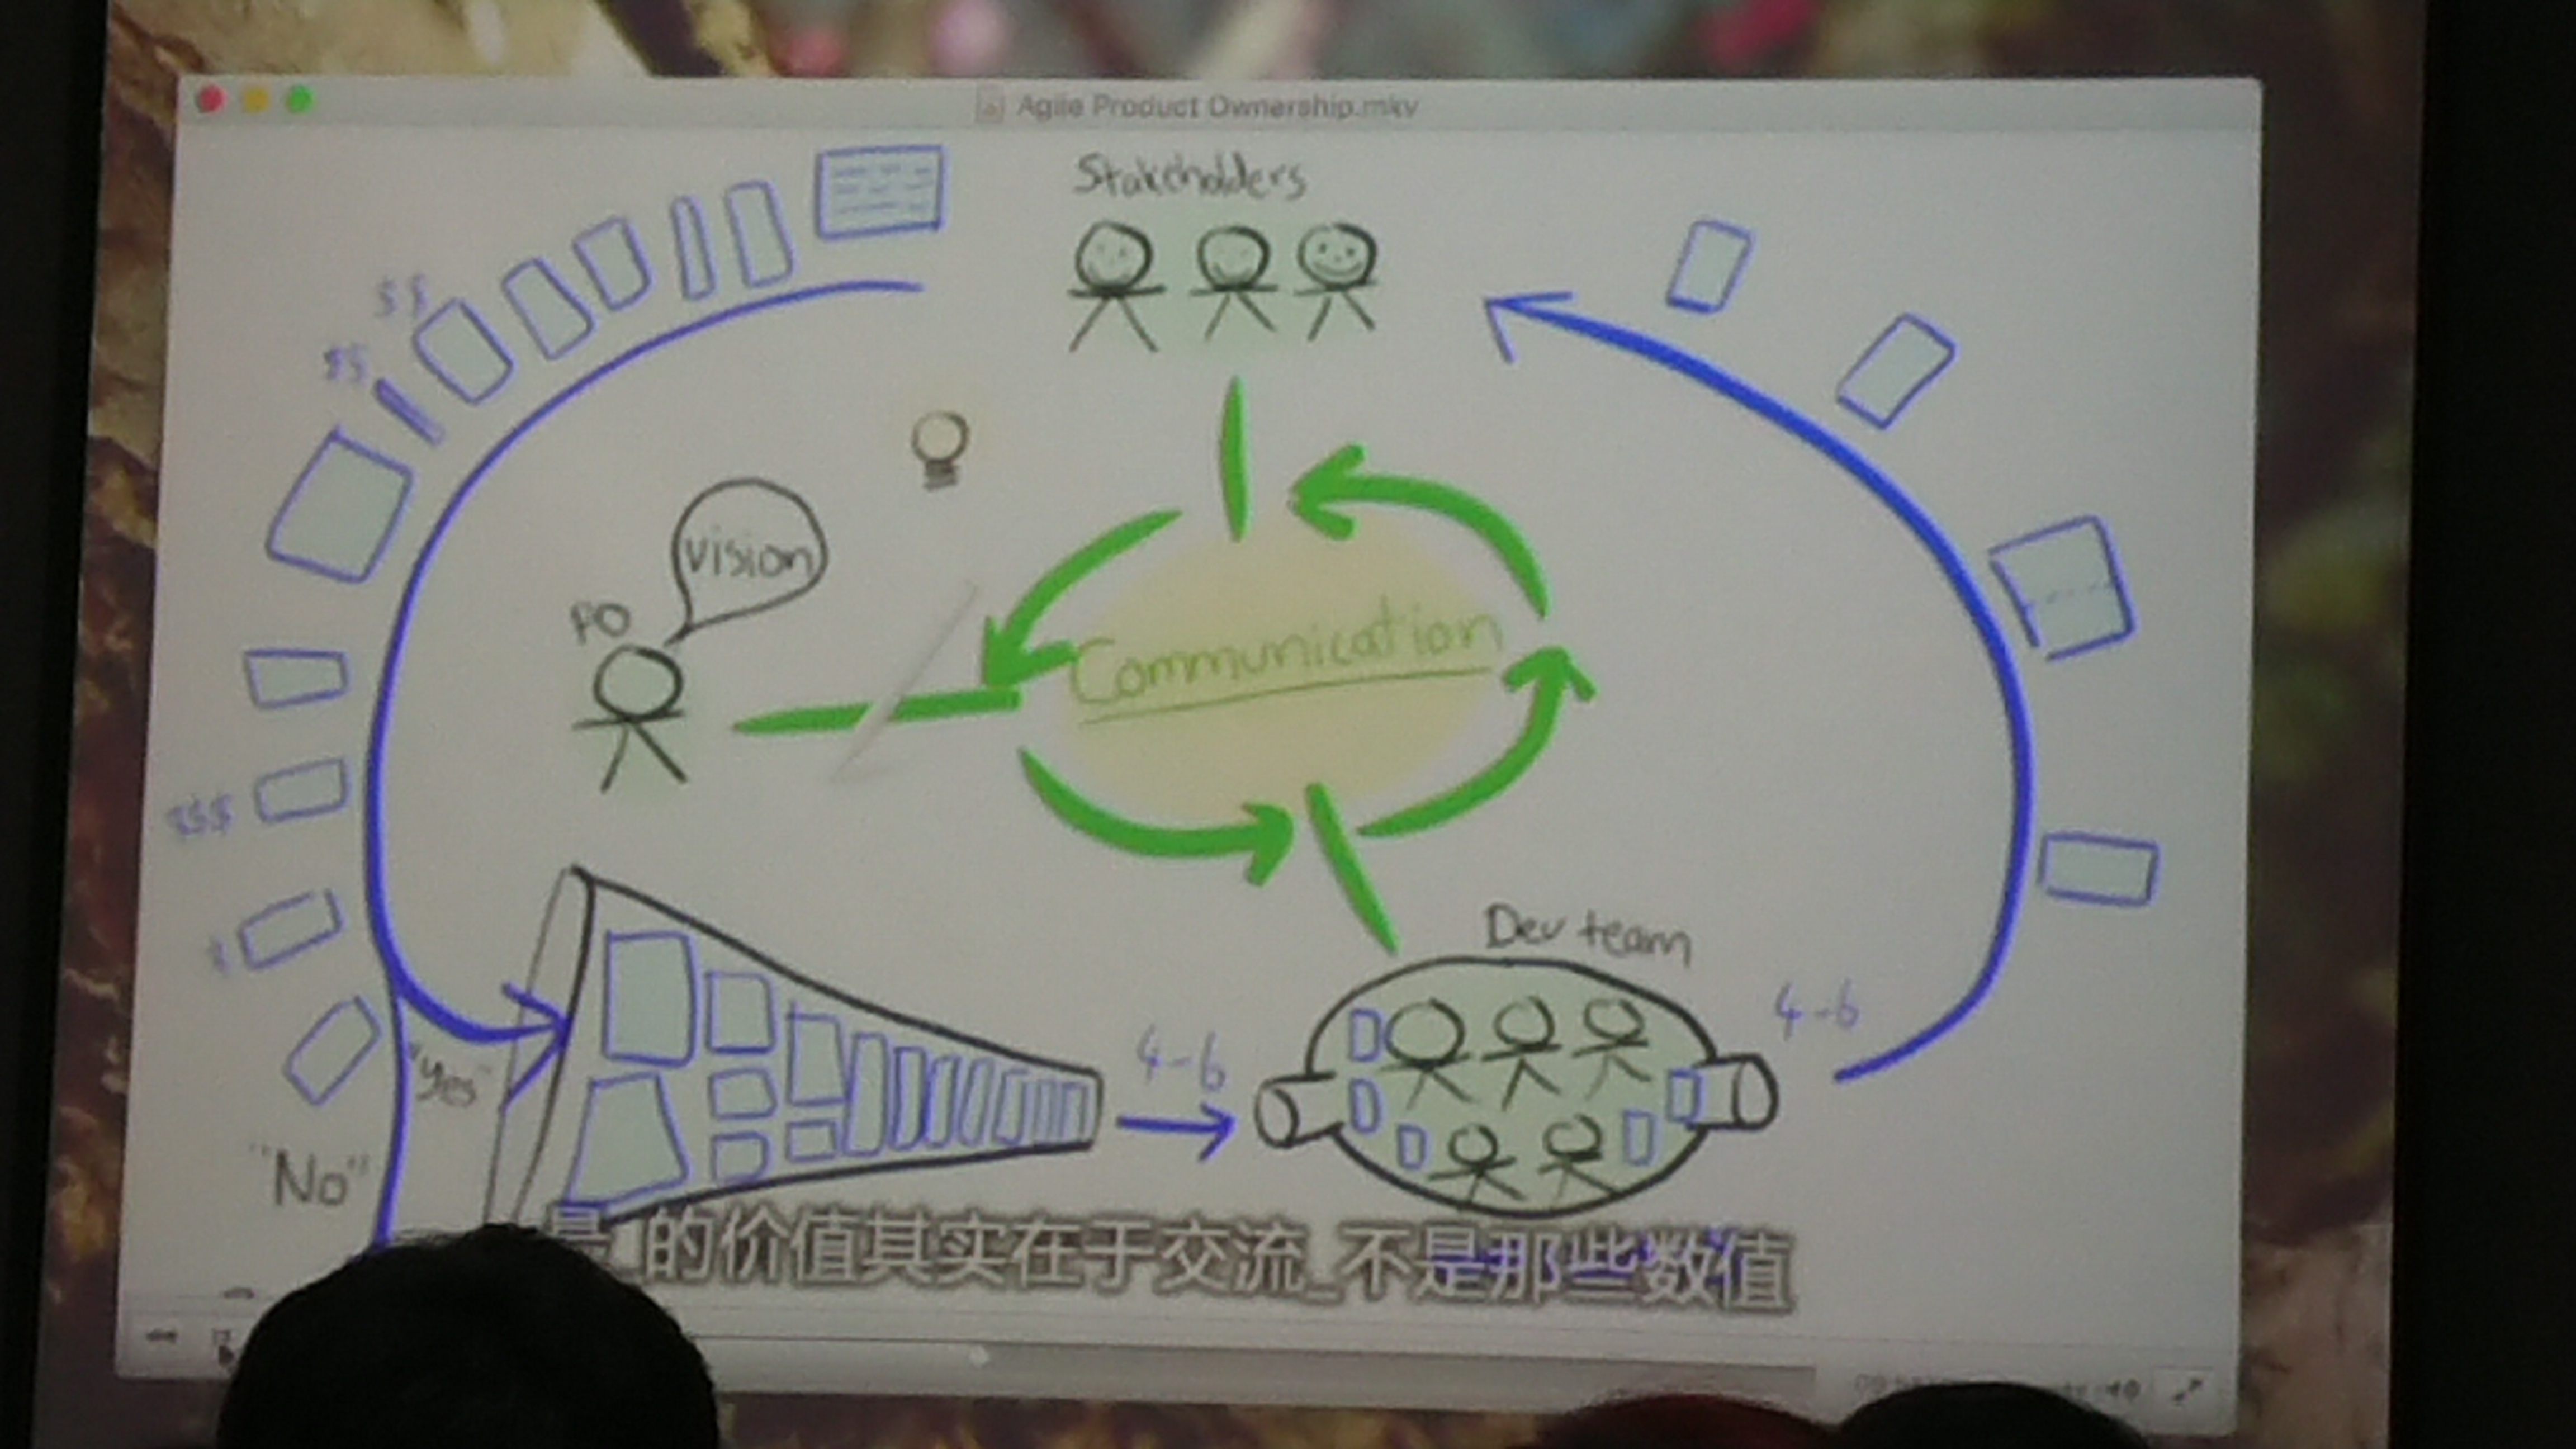 Agile Product Ownership.mkv
Stakeholders
$$
$$
vision
PO
Communication
$$$
$
Dev team
4-6
4-6
"Yes"
"No"
的价值其实在于交流_不是那些数值